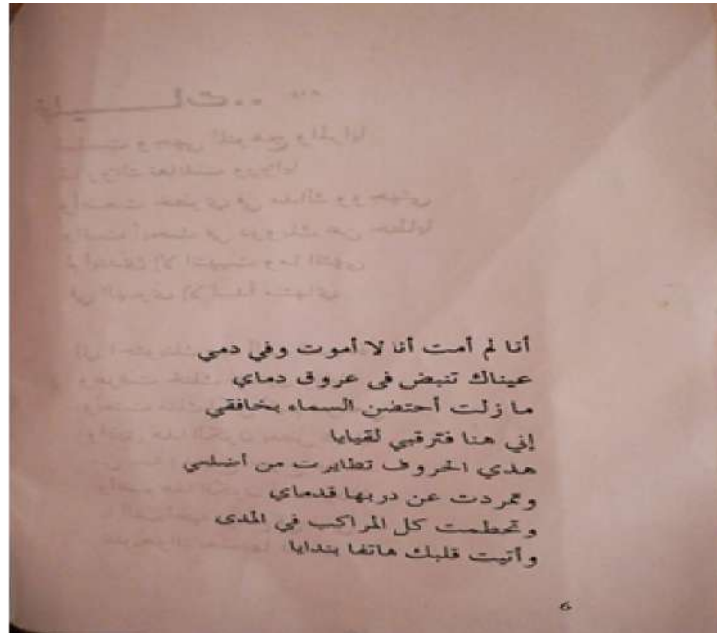 أنا لم أمت أنا لا أموت وفي دمي
عيناك تنبض فى عروق دماي
ما زلت أحتضن السماء بخافقي
إني هنا فترقبي لقيايا
هذي الحروف تطايرت من أضلعي
وتمردت عن دربها قدماي
وتحطمت كل المراكب في المدى
وأتيت قلبك هاتفا بندايا
6